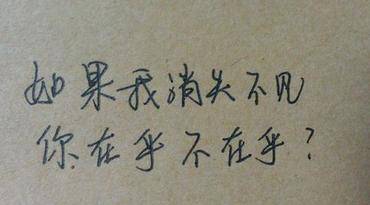 如果我消失不见
你在乎不在乎？